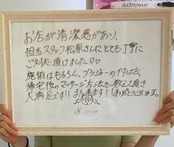 お店が清潔感があり、
担当スタッフ松原さんにとても丁寧に
ご対応頂きました♡♡
施術はもちろん、ブラジャーの付け方、
帰宅後のマッサージ方法も教えて頂き
大満足です!! また来ます! ありがとうございます。